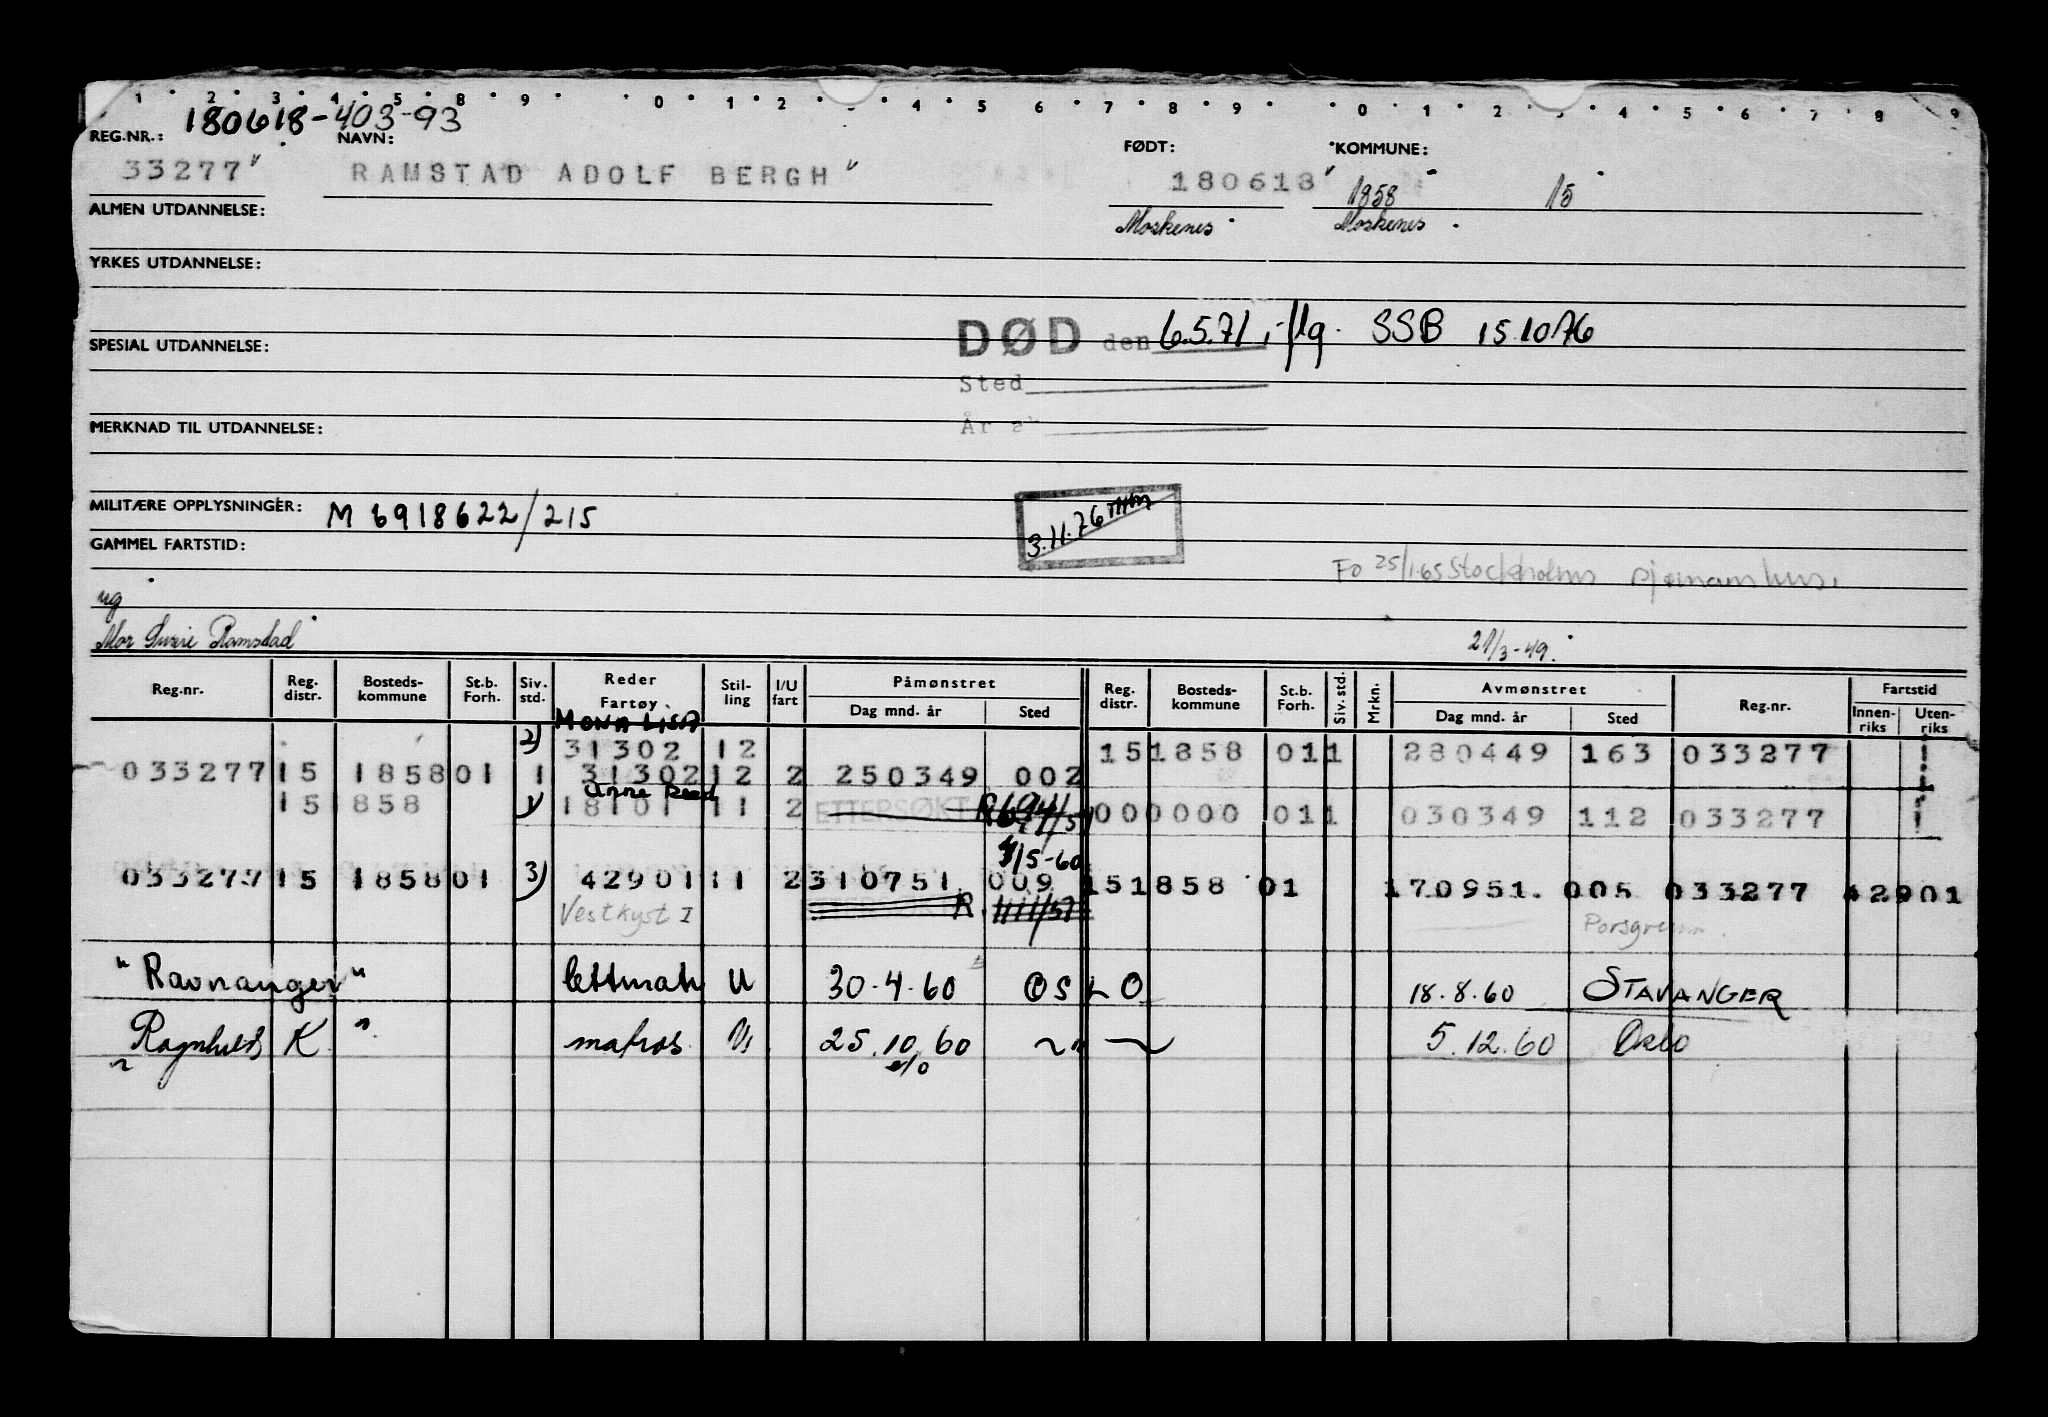 1 2 3 4 5 8 9 0 1 2 4 5 6 7 8 9 0 1 2 3 4 5 6 7 8 9
180618-403-93
REG.NR.: NAVN: FØDT: KOMMUNE:
33277 RAMSTAD ADOLF BERGH 180618 1858 15
ALMEN UTDANNELSE: Moskenes Moskenes
YRKES UTDANNELSE:
DØD den 6.5.71 iflg. SSB 15.10.76
SPESIAL UTDANNELSE:
Sted
År
MERKNAD TIL UTDANNELSE:
MILITÆRE OPPLYSNINGER: M 6918622/215
3.11.76
GAMMEL FARTSTID:
Fo 25/1.65 Stockholms sjömanshus.
ug
Mor Ramstad 21/3-49.
Reg.nr. Reg. distr. Bosteds-kommune St.b. Forh. Siv. std. Reder Fartøy Stil-ling I/U fart Påmønstret Dag mnd. år Sted Reg. distr. Bosteds-kommune St.b. Forh. Siv. std. Mrkn. Avmønstret Dag mnd. år Sted Reg.nr. Fartstid Innen-riks Uten-riks
MONA LISA
2) 31302 12 15 1858 01 1 280449 163 033277
033277 15 1858 01 1 31302 12 2 250349 002
Anne
15 858 1) 18101 11 2 ETTERSØKT 000000 01 1 030349 112 033277
4/5-60
033277 15 1858 01 3) 42901 11 2 310751 009 15 1858 01 170951. 005 033277 42901
Vestkyst I R. Porsgrunn
"Ravnanger" lettmatr U 30.4.60 OSLO 18.8.60 STAVANGER
Ragnhild K " matros 25.10.60 ~"~ 5.12.60 Oslo